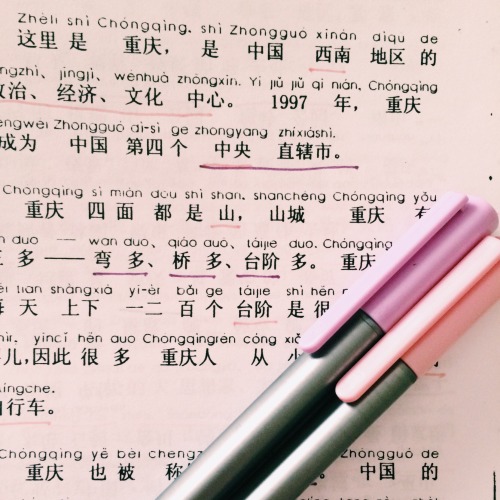 Zhèli shì Chóngqìng, shì Zhongguó xīnán dìqu de
这里是 重庆， 是 中国 西南 地区 的
jīngjì, wénhuà zhōngxīn. Yī jiǔ jiǔ qī nián, Chóngqìng
治、经济、文化 中心。 1997 年， 重庆
Zhongguó dì-sì ge zhongyang zhíxiáshì.
成为 中国 第四个 中央 直辖市。
Chóngqìng sì miàn dōu shì shan, shanchéng Chóngqìng yǒu
重庆 四面 都是山，山城 重庆 有
duo — wan duo、qiáo duo、táijiē duo. Chóngqìng
多——弯多、桥多、台阶多。 重庆
tian shàngxià yì-èr bǎi ge táijiē shì hěn
每天 上下 一二百个台阶是很
yīncǐ hěn duo Chóngqìngrén cóng
儿,因此很多 重庆人 从 小
自行车。
Chóngqìng yě bèi
重庆 也 被 称 中国 的